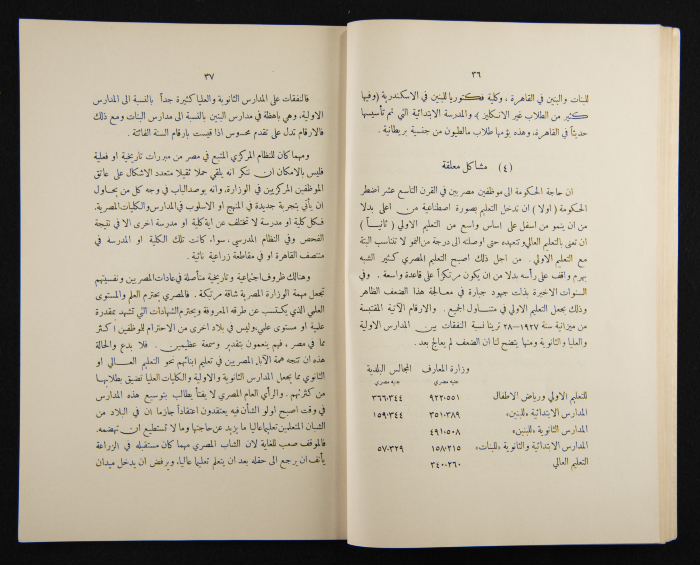 ٣٦
للبنات والبنين في القاهرة ، وكلية فكتوريا للبنين في الاسكندرية (وفيها
كثير من الطلاب غير الانكليز )، والمدرسة الابتدائية التي تم تأسيسها
حديثاً في القاهرة، وهذه يؤمها طلاب مالطيون من جنسية بريطانية .
(٤) مشاكل معلقة
ان حاجة الحكومة الى موظفين مصريين في القرن التاسع عشر اضطر
الحكومة ( اولا ) ان تدخل التعليم بصورة اصطناعية من اعلى بدلا
من ان ينمو من اسفل على اساس واسع من التعليم الاولي ( ثانياً )
ان تعنى بالتعليم العالي وتتعهده حتى اوصلته الى درجة من النمو لا تتناسب البتة
مع التعليم الاولي . من اجل ذلك اصبح التعليم المصري كثير الشبه
بهرم واقف على رأسه بدلا من ان يكون مرتكزاً على قاعدة واسعة . وفي
السنوات الاخيرة بذلت جهود جبارة في معالجة هذا الضعف الظاهر
وذلك بجعل التعليم الاولي في متناول الجميع . والارقام الآتية المقتبسة
من ميزانية سنة ١٩٢٧-٢٨ ترينا نسبة النفقات بين المدارس الاولية
والعليا والثانوية ومنها يتضح لنا ان الضعف لم يعالج بعد .
وزارة المعارف المجالس البلدية
جنيه مصري جنيه مصري
للتعليم الاولي ورياض الاطفال ٩٢٢٠٥٥١ ٣٦٦٠٣٤٤
المدارس الابتدائية «للبنين» ٣٥١٠٣٨٩ ١٥٩٠٣٤٤
المدارس الثانوية «للبنين» ٤٩١٠٥٠٨
المدارس الابتدائية والثانوية «للبنات» ١٥٨٠٢١٥ ٥٧٠٣٢٩
التعليم العالي ٣٤٠٠٢٦٠
٣٧
فالنفقات على المدارس الثانوية والعليا كثيرة جداً بالنسبة الى المدارس
الاولية، وهي باهظة في مدارس البنين بالنسبة الى مدارس البنات ومع ذلك
فالارقام تدل على تقدم محسوس اذا قيست بارقام السنة الفائتة .
ومهما كان للنظام المركزي المتبع في مصر من مبررات تاريخية او فعلية
فليس بالامكان ان ننكر انه يلقي حملا ثقيلا متعدد الاشكال على عاتق
الموظفين المركزيين في الوزارة، وانه يوصد الباب في وجه كل من يحاول
ان يأتي بتجربة جديدة في المنهج او الاسلوب في المدارس والكليات المصرية.
فكل كلية او مدرسة لا تختلف عن اية كلية او مدرسة اخرى الا في نتيجة
الفحص وفي النظام المدرسي ، سواء كانت تلك الكلية او المدرسة في
منتصف القاهرة او في مقاطعة زراعية نائية .
وهنالك ظروف اجتماعية وتاريخية متأصلة في عادات المصريين ونفسيتهم
تجعل مهمة الوزارة المصرية شاقة مرتبكة . فالمصري يحترم العلم والمستوى
العلمي الذي يكتسب عن طرقه المعروفة ويحترم الشهادات التي تشهد بمقدرة
علمية او مستوى علمي وليس في بلاد اخرى من الاحترام للموظفين اكثر
مما في مصر ، فهم ينعمون بتقدير وسمعة عظيمين . فلا بدع والحالة
هذه ان تتجه همة الآباء المصريين في تعليم ابنائهم نحو التعليم العالي او
الثانوي مما يجعل المدارس الثانوية والاولية والكليات العليا تضيق بطلابها
من كثرتهم . والرأي العام المصري لا يفتأ يطالب بتوسيع هذه المدارس
في وقت اصبح اولو الشأن فيه يعتقدون اعتقاداً جازما ان في البلاد من
الشبان المتعلمين تعليماً عاليا ما يزيد عن حاجتها وما لا تستطيع ان تهضمه.
فالموقف صعب للغاية لان الشاب المصري مهما كان مستقبله في الزراعة
يأنف ان يرجع الى حقله بعد ان يتعلم تعليما عاليا، ويرفض ان يدخل ميدان